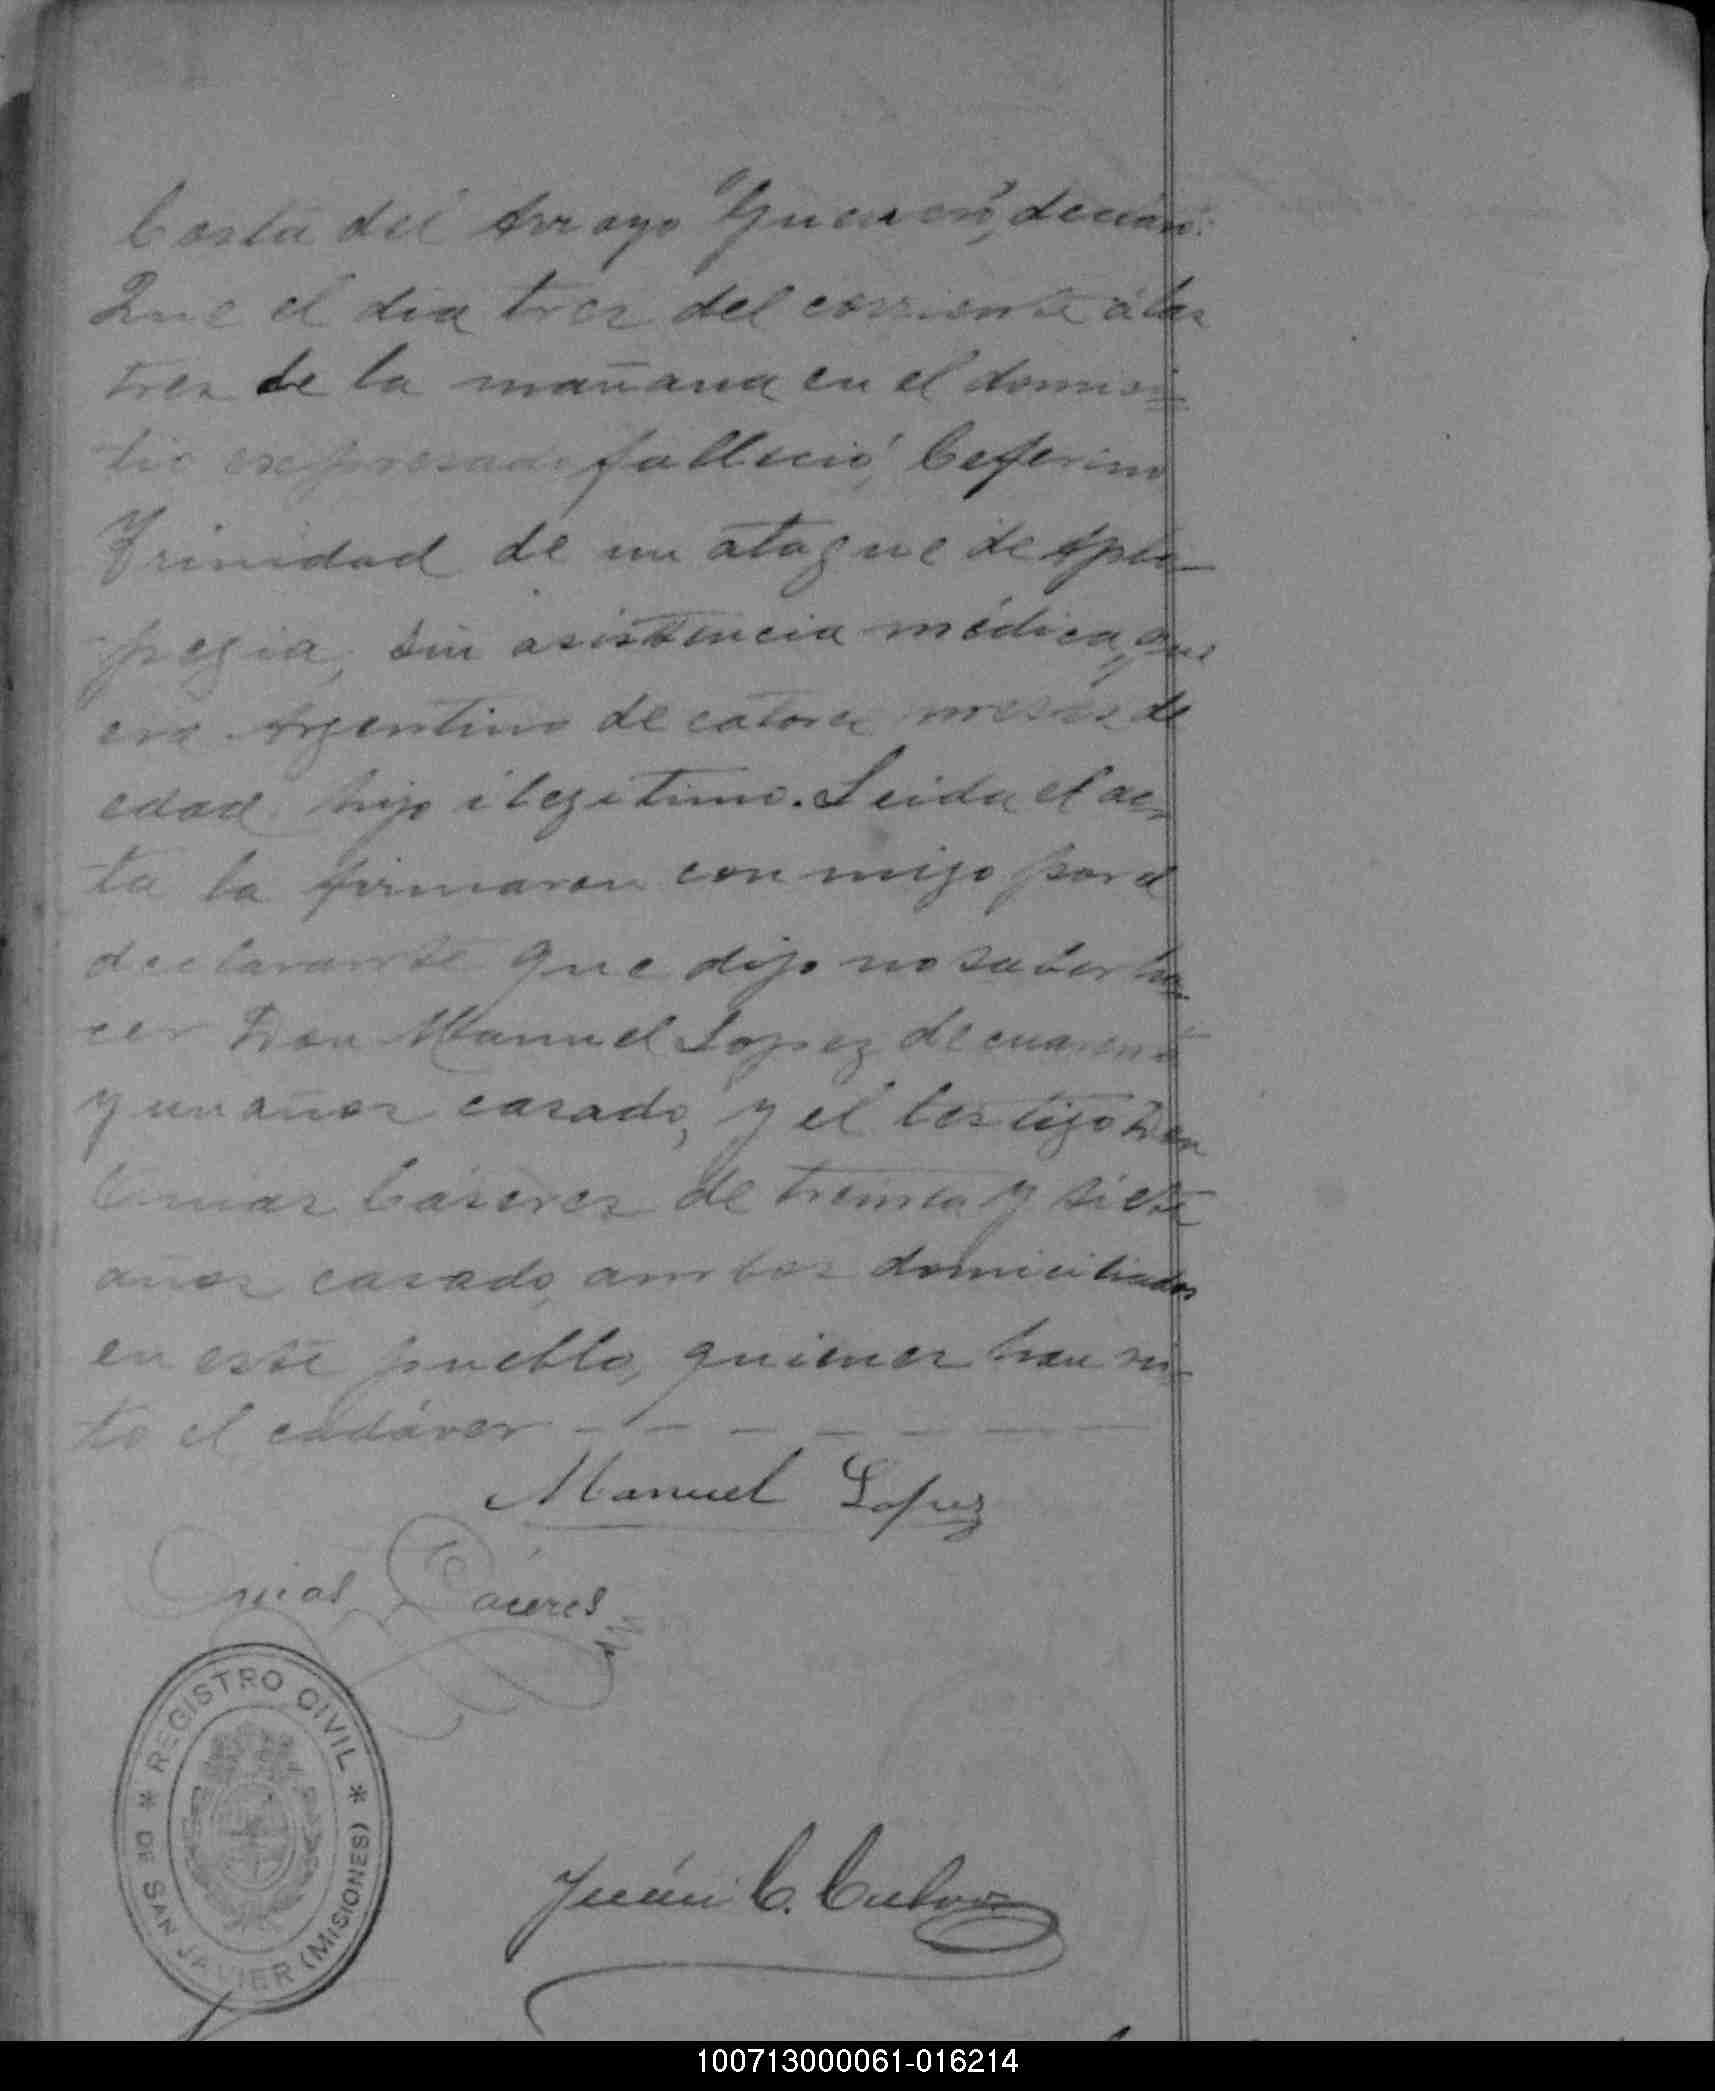 Costa del Arroyo "Guerrero",
Que el día tres del corriente á las
tres de la mañana en el domici=
lio expresado falleció, Ceferino
Trinidad de un ataque de Aplo-
pegia, sin asistencia médica, que
era Argentino de catorce meses de
edad hijo ilegitimo. Leida el ac-
ta la firmaron con migo por el
declarante que dijo no saber ha-
cer Don Manuel Lopez de cuarenta
y un años casado, y el testigo Don
Cáseres de treinta y siete
años casado, ambos domiciliados
en este pueblo, quienes han vis-
to el cadáver
Manuel Lopez
Cáceres
REGISTRO CIVIL
DE SAN JAVIER (MISIONES)
Juán C.
100713000061-016214